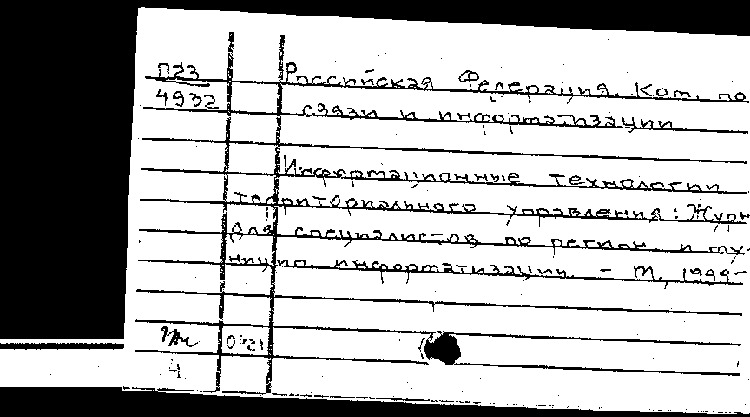 П23
4932
Российская Федерация. Ком. по
связи и информатизации
Информационные технологии
территориального управления: Журн
для специалистов по регион. и му-
ницип. информатизации. - М., 1999-
4